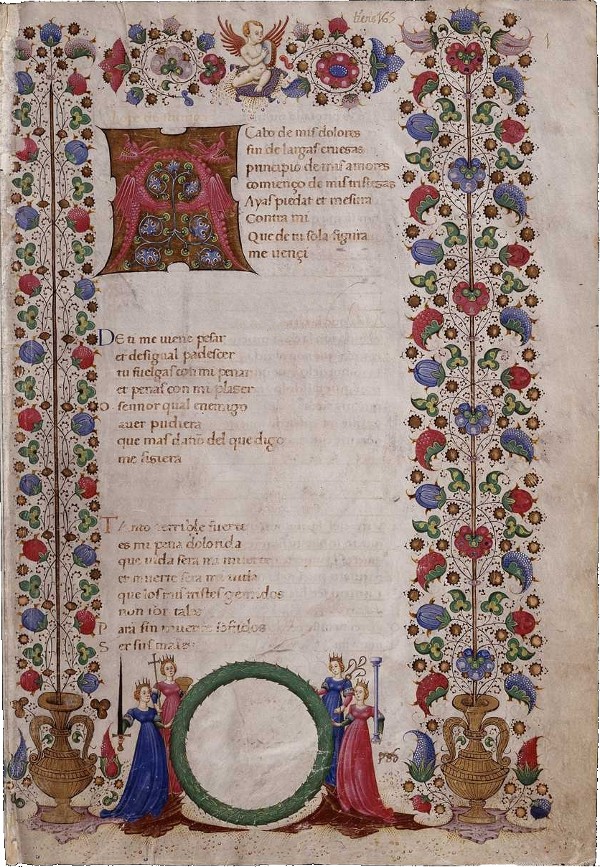 A Cabo de mis dolores
fin de largas cruesas
principio de mis amores
comienço de mis tristesas
Ayas piedat et mesura
Contra mi
Que de tu sola figura
me vençi
DE ti me viene pesar
et desigual padescer
tu fuelgas con mi penar
et penas con mi plaser
O sennor qual enemigo
aver pudiera
que mas danno del que digo
me fisiera
TAnto terrible
es mi pena dolorida
que vida sera mi muerte
et muerte sera mi vida
que los mis tristes gemidos
non son tales
Para sin muerte sofridos
Ser sus males